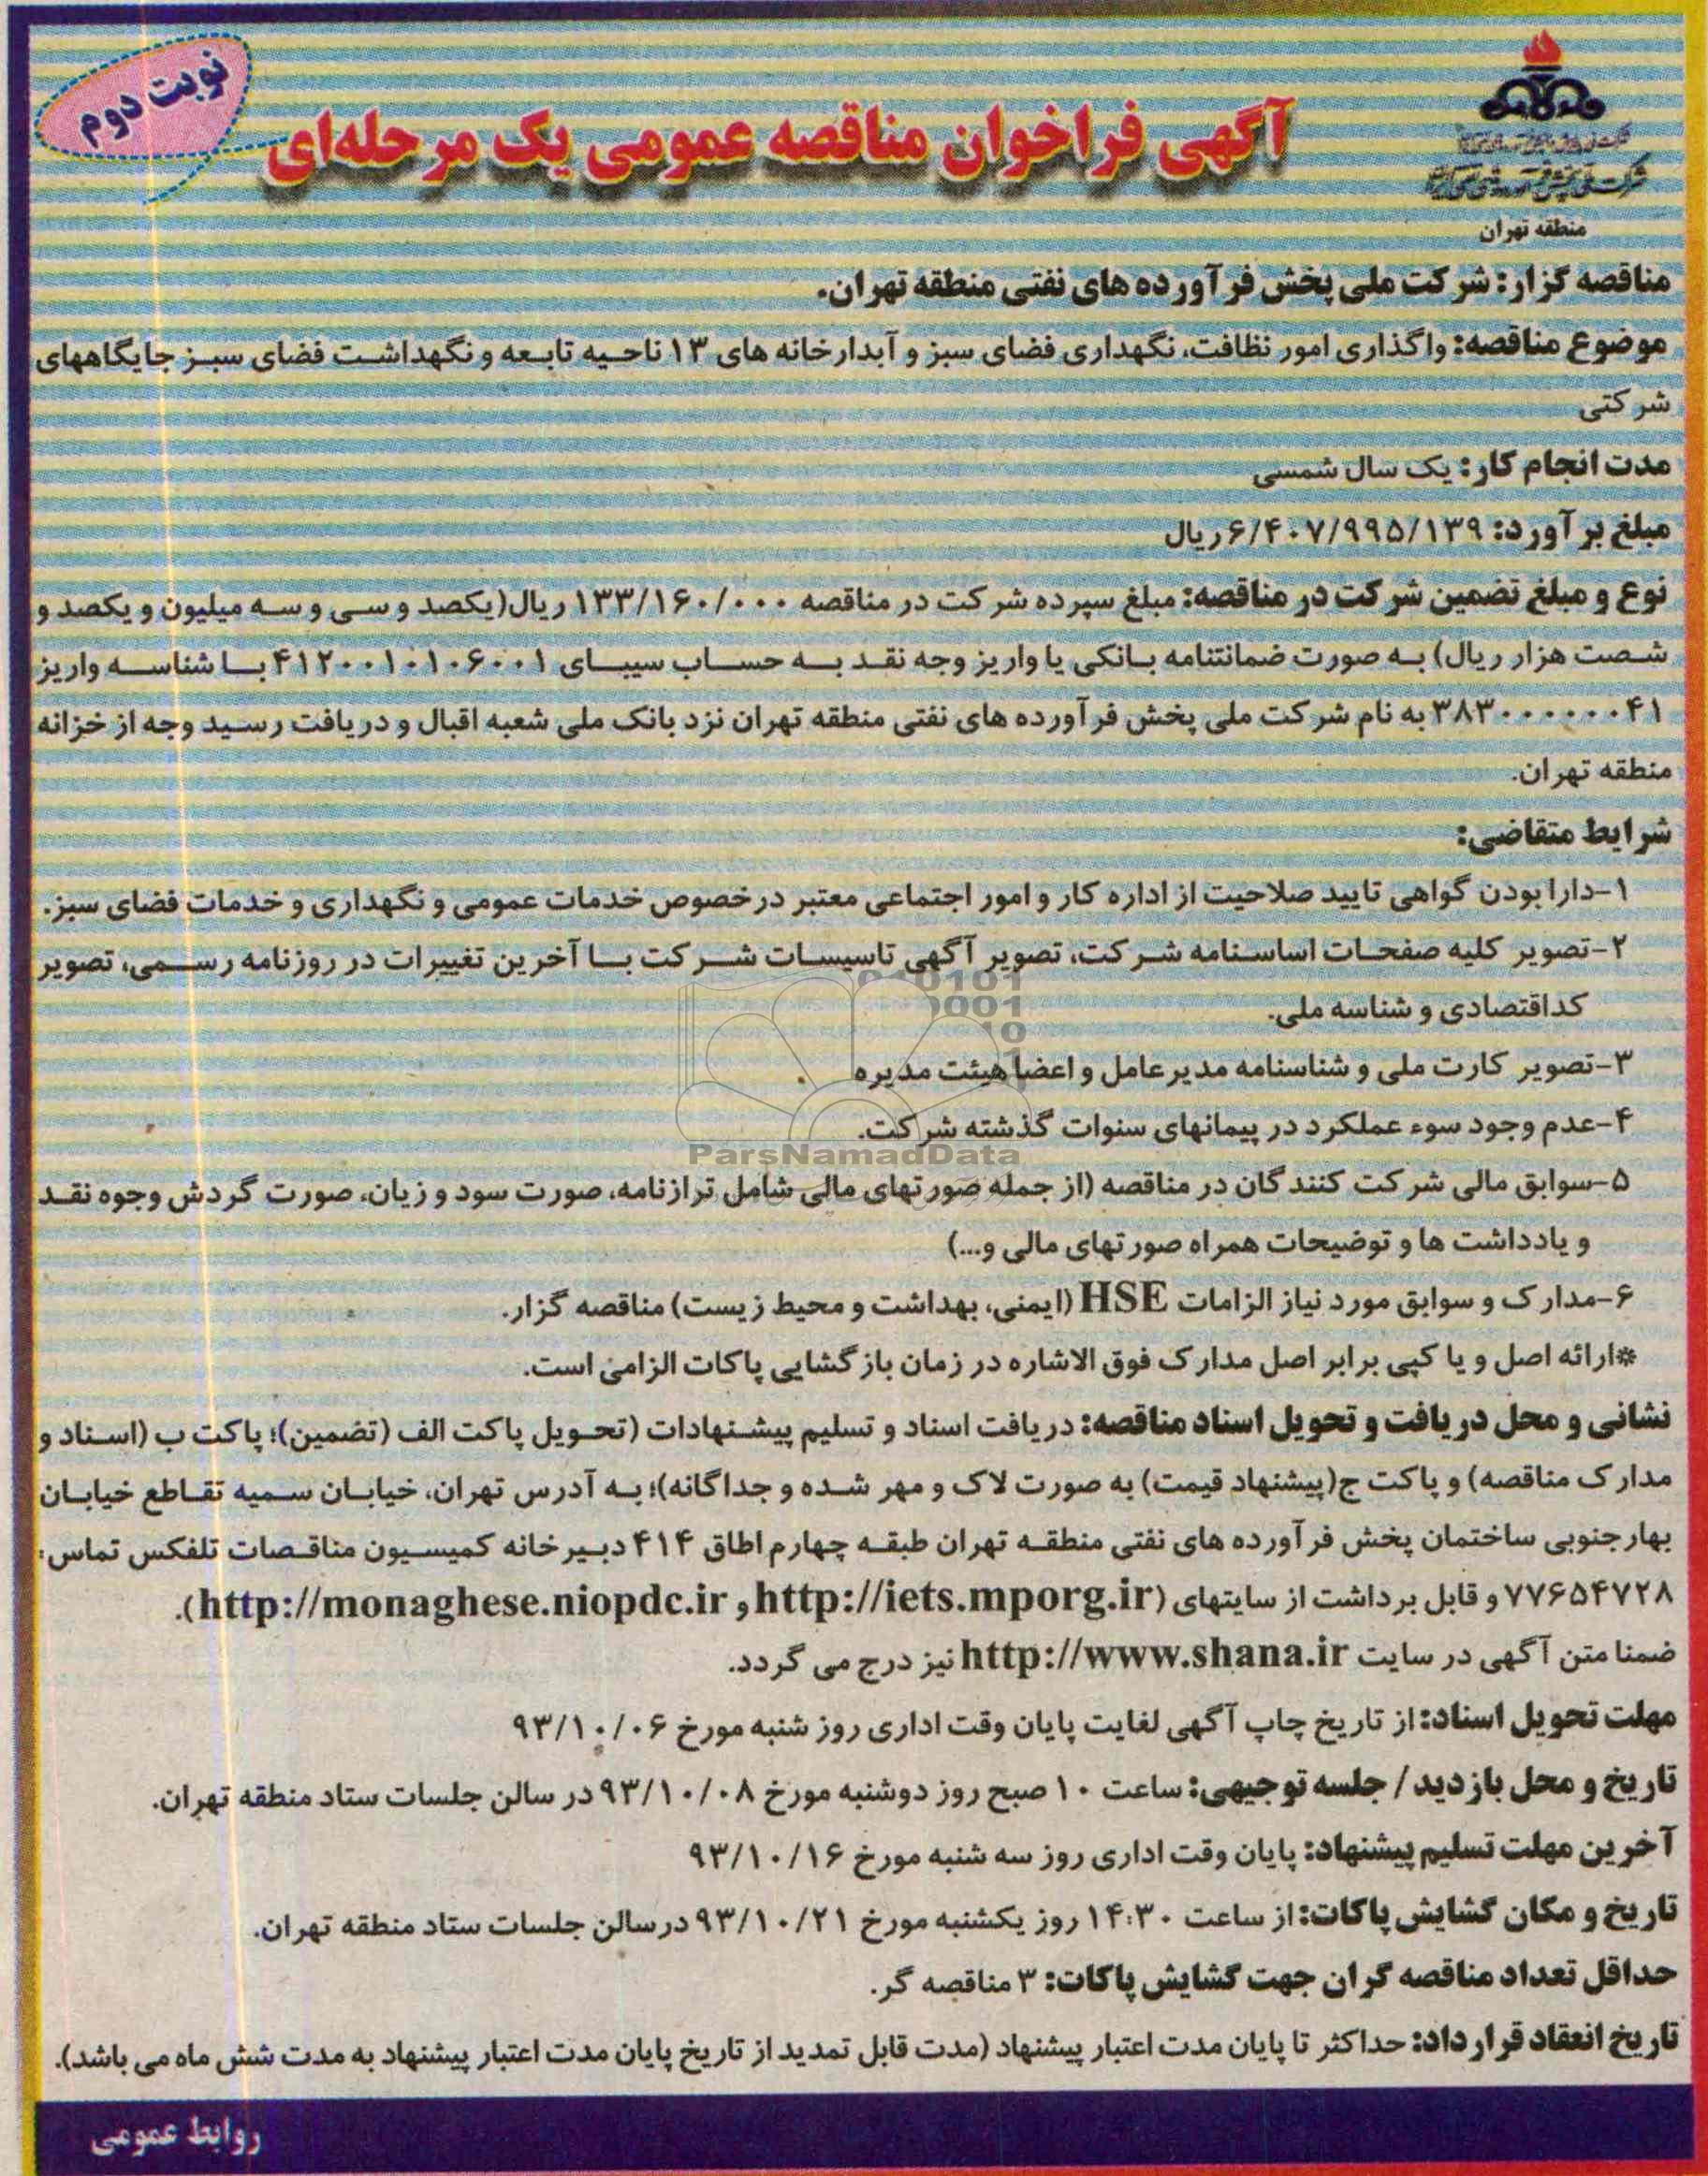 نوبت دوم
آگهی فراخوان مناقصه عمومی یک مرحله‌ای
منطقه تهران
مناقصه گزار: شرکت ملی پخش فرآورده های نفتی منطقه تهران.
موضوع مناقصه: واگذاری امور نظافت، نگهداری فضای سبز و آبدارخانه های ۱۳ ناحیه تابعه و نگهداشت فضای سبز جایگاههای
شرکتی
مدت انجام کار: یک سال شمسی
مبلغ برآورد: ۶/۴۰۷/۹۹۵/۱۳۹ ریال
نوع و مبلغ تضمین شرکت در مناقصه: مبلغ سپرده شرکت در مناقصه ۱۳۳/۱۶۰/۰۰۰ ریال(یکصد و سی و سه میلیون و یکصد و
شصت هزار ریال) به صورت ضمانتنامه بانکی یا واریز وجه نقد به حساب سیبای ۴۱۲۰۰۱۰۱۰۶۰۰۱ با شناسه واریز
۳۸۳۰۰۰۰۰۰۴۱ به نام شرکت ملی پخش فرآورده های نفتی منطقه تهران نزد بانک ملی شعبه اقبال و دریافت رسید وجه از خزانه
منطقه تهران.
شرایط متقاضی:
۱-دارا بودن گواهی تایید صلاحیت از اداره کار و امور اجتماعی معتبر درخصوص خدمات عمومی و نگهداری و خدمات فضای سبز.
۲-تصویر کلیه صفحات اساسنامه شرکت، تصویر آگهی تاسیسات شرکت با آخرین تغییرات در روزنامه رسمی، تصویر
کداقتصادی و شناسه ملی.
۳-تصویر کارت ملی و شناسنامه مدیرعامل و اعضا هیئت مدیره
۴-عدم وجود سوء عملکرد در پیمانهای سنوات گذشته شرکت.
ParsNamadData
۵-سوابق مالی شرکت کنندگان در مناقصه (از جمله صورتهای مالی شامل ترازنامه، صورت سود و زیان، صورت گردش وجوه نقد
و یادداشت ها و توضیحات همراه صورتهای مالی و...)
۶-مدارک و سوابق مورد نیاز الزامات HSE (ایمنی، بهداشت و محیط زیست) مناقصه گزار.
*ارائه اصل و یا کپی برابر اصل مدارک فوق الاشاره در زمان بازگشایی پاکات الزامی است.
نشانی و محل دریافت و تحویل اسناد مناقصه: دریافت اسناد و تسلیم پیشنهادات (تحویل پاکت الف (تضمین)؛ پاکت ب (اسناد و
مدارک مناقصه) و پاکت ج(پیشنهاد قیمت) به صورت لاک و مهر شده و جداگانه)؛ به آدرس تهران، خیابان سمیه تقاطع خیابان
بهارجنوبی ساختمان پخش فرآورده های نفتی منطقه تهران طبقه چهارم اطاق ۴۱۴ دبیرخانه کمیسیون مناقصات تلفکس تماس:
۷۷۶۵۴۷۲۸ و قابل برداشت از سایتهای (http://iets.mporg.ir و http://monaghese.niopdc.ir).
ضمنا متن آگهی در سایت http://www.shana.ir نیز درج می گردد.
مهلت تحویل اسناد: از تاریخ چاپ آگهی لغایت پایان وقت اداری روز شنبه مورخ ۹۳/۱۰/۰۶
تاریخ و محل بازدید / جلسه توجیهی: ساعت ۱۰ صبح روز دوشنبه مورخ ۹۳/۱۰/۰۸ در سالن جلسات ستاد منطقه تهران.
آخرین مهلت تسلیم پیشنهاد: پایان وقت اداری روز سه شنبه مورخ ۹۳/۱۰/۱۶
تاریخ و مکان گشایش پاکات: از ساعت ۱۴:۳۰ روز یکشنبه مورخ ۹۳/۱۰/۲۱ درسالن جلسات ستاد منطقه تهران.
حداقل تعداد مناقصه گران جهت گشایش پاکات: ۳ مناقصه گر.
تاریخ انعقاد قرارداد: حداکثر تا پایان مدت اعتبار پیشنهاد (مدت قابل تمدید از تاریخ پایان مدت اعتبار پیشنهاد به مدت شش ماه می باشد).
روابط عمومی